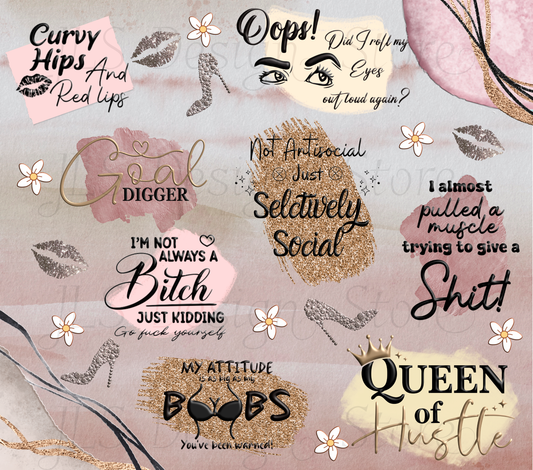 Curvy
Hips And
Red lips
Oops!
Did I roll my
Eyes
out loud again?
Goal
DIGGER
Not Antisocial
Just
Selctively
Social
I almost
pulled a
muscle
trying to give a
Shit!
I'M NOT
ALWAYS A
Bitch
JUST KIDDING
Go fuck yourself
MY ATTITUDE
IS AS BIG AS MY
BOOBS
You've been warned!
QUEEN
of
Hustle